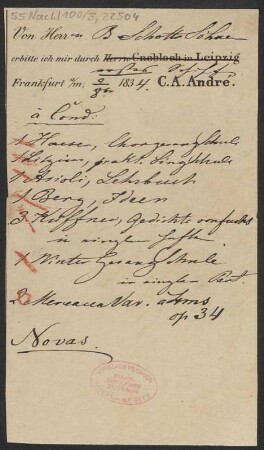 55 Nachl 100/B, 22504
Von Herrn B Schotts Söhne
erbitte ich mir durch Herrn Cnobloch in Leipzig
erstes Schiff
Frankfurt a/m. 2/8 1834 C.A. André.
à Cond:
1 Haeser, Chorgesangschule
1 prakt. Singschule
1 Asioli, Lehrbuch
1 Berg, Ideen
3 Gedichte
in einzeln Heften
1 Winter Gesangschule
in einzeln
2 Mereaux Var. à 4ms
op 34
Novas.